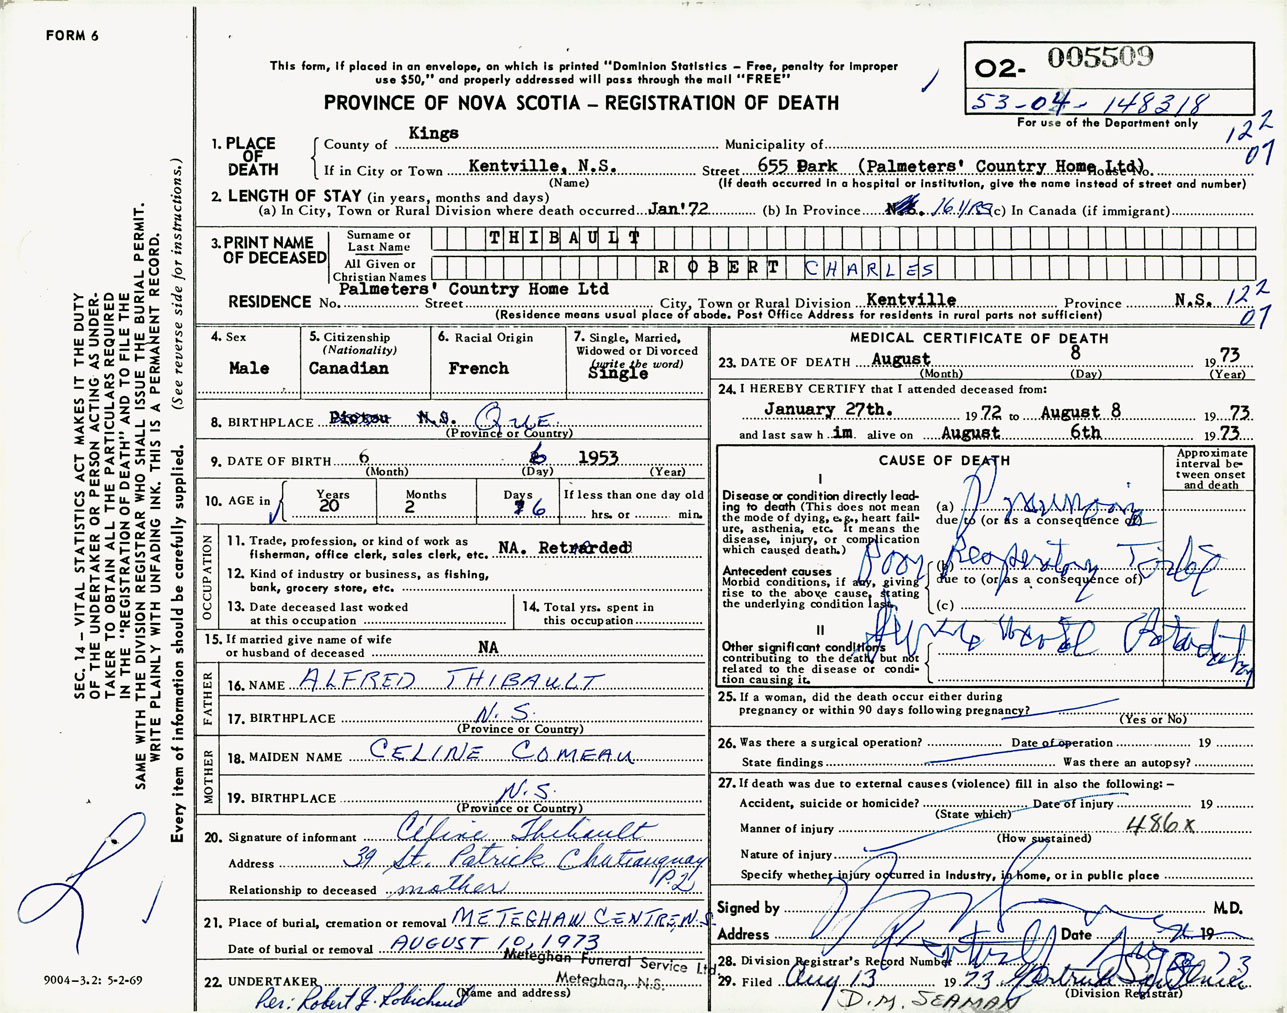 FORM 6
This form, if placed in an envelope, on which is printed "Dominion Statistics – Free, penalty for improper
use $50," and properly addressed will pass through the mail "FREE"
PROVINCE OF NOVA SCOTIA – REGISTRATION OF DEATH
O2- 005509
53-04- 148318
For use of the Department only
122
07
1. PLACE OF DEATH
County of Kings Municipality of
If in City or Town Kentville, N.S. Street 655 Park (Palmeters' Country Home Ltd) House No.
(Name) (If death occurred in a hospital or institution, give the name instead of street and number)
2. LENGTH OF STAY (in years, months and days)
(a) In City, Town or Rural Division where death occurred Jan'72 (b) In Province 16 yrs (c) In Canada (if immigrant)
3. PRINT NAME OF DECEASED
Surname or Last Name THIBAULT
All Given or Christian Names ROBERT CHARLES
Palmeters' Country Home Ltd
RESIDENCE No. Street City, Town or Rural Division Kentville Province N.S. 122
(Residence means usual place of abode. Post Office Address for residents in rural parts not sufficient) 07
4. Sex
Male
5. Citizenship
(Nationality)
Canadian
6. Racial Origin
French
7. Single, Married,
Widowed or Divorced
(write the word)
Single
8. BIRTHPLACE Pictou N.S. Que.
(Province or Country)
9. DATE OF BIRTH 6 6 1953
(Month) (Day) (Year)
10. AGE in
Years 20
Months 2
Days 6
If less than one day old
hrs. or min.
OCCUPATION
11. Trade, profession, or kind of work as
fisherman, office clerk, sales clerk, etc. NA. Retarded
12. Kind of industry or business, as fishing,
bank, grocery store, etc.
13. Date deceased last worked
at this occupation
14. Total yrs. spent in
this occupation
15. If married give name of wife
or husband of deceased NA
FATHER
16. NAME ALFRED THIBAULT
17. BIRTHPLACE N.S.
(Province or Country)
MOTHER
18. MAIDEN NAME CELINE COMEAU
19. BIRTHPLACE N.S.
(Province or Country)
20. Signature of informant Céline Thibault
Address 39 St. Patrick Chateauguay
P.2
Relationship to deceased mother
21. Place of burial, cremation or removal METEGHAN CENTRE, N.S.
Date of burial or removal AUGUST 10, 1973
Meteghan Funeral Service Ltd.
22. UNDERTAKER Meteghan, N.S.
(Name and address)
Per: Robert J. Robichaud
MEDICAL CERTIFICATE OF DEATH
23. DATE OF DEATH August 8 1973
(Month) (Day) (Year)
24. I HEREBY CERTIFY that I attended deceased from:
January 27th. 1972 to August 8 1973
and last saw h im. alive on August 6th. 1973
CAUSE OF DEATH
Approximate interval between onset and death
I
Disease or condition directly leading to death (This does not mean
the mode of dying, e.g., heart failure, asthenia, etc. It means the
disease, injury, or complication
which caused death.)
(a) Pneumonia
due to (or as a consequence of)
Antecedent causes
Morbid conditions, if any, giving
rise to the above cause, stating
the underlying condition last.
(b) Poor Respiratory
due to (or as a consequence of)
(c)
II
Other significant conditions
contributing to the death, but not
related to the disease or condition causing it.
25. If a woman, did the death occur either during
pregnancy or within 90 days following pregnancy?
(Yes or No)
26. Was there a surgical operation? Date of operation 19
State findings Was there an autopsy?
27. If death was due to external causes (violence) fill in also the following:–
Accident, suicide or homicide? Date of injury 19
(State which)
Manner of injury 486x
(How sustained)
Nature of injury
Specify whether injury occurred in Industry, in home, or in public place
Signed by M.D.
Address Kentville Date 19
28. Division Registrar's Record Number
29. Filed Aug 13 1973
(Division Registrar)
D.M. SEAMAN
SEC. 14 – VITAL STATISTICS ACT MAKES IT THE DUTY
OF THE UNDERTAKER OR PERSON ACTING AS UNDER-
TAKER TO OBTAIN ALL THE PARTICULARS REQUIRED
IN THE "REGISTRATION OF DEATH" AND TO FILE THE
SAME WITH THE DIVISION REGISTRAR WHO SHALL ISSUE THE BURIAL PERMIT.
WRITE PLAINLY WITH UNFADING INK. THIS IS A PERMANENT RECORD.
Every item of information should be carefully supplied. (See reverse side for instructions.)
9004-3.2: 5-2-69